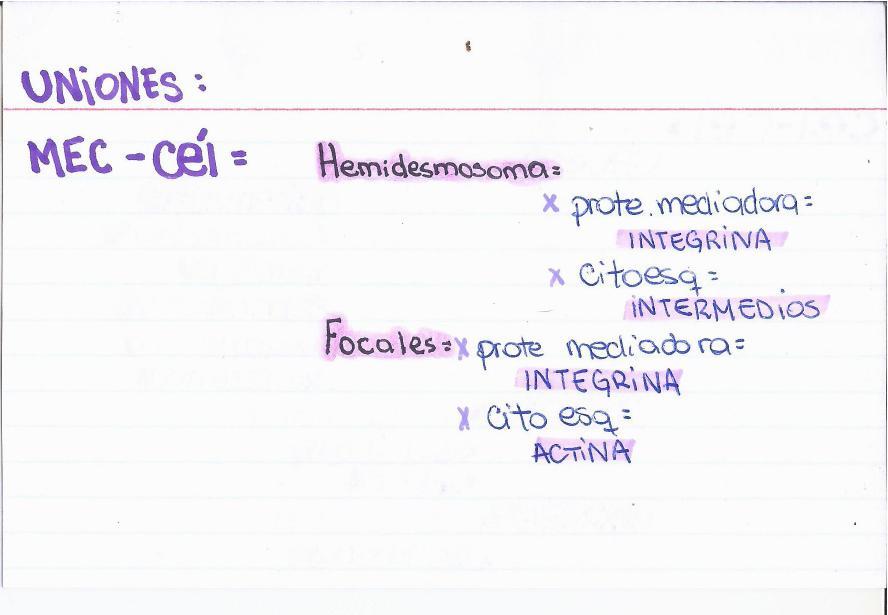 UNIONES:
MEC - Cél = Hemidesmosoma=
x prote. mediadora=
INTEGRINA
x Citoesq=
INTERMEDIOS
Focales= x prote mediadora=
INTEGRINA
x Cito esq=
ACTINA